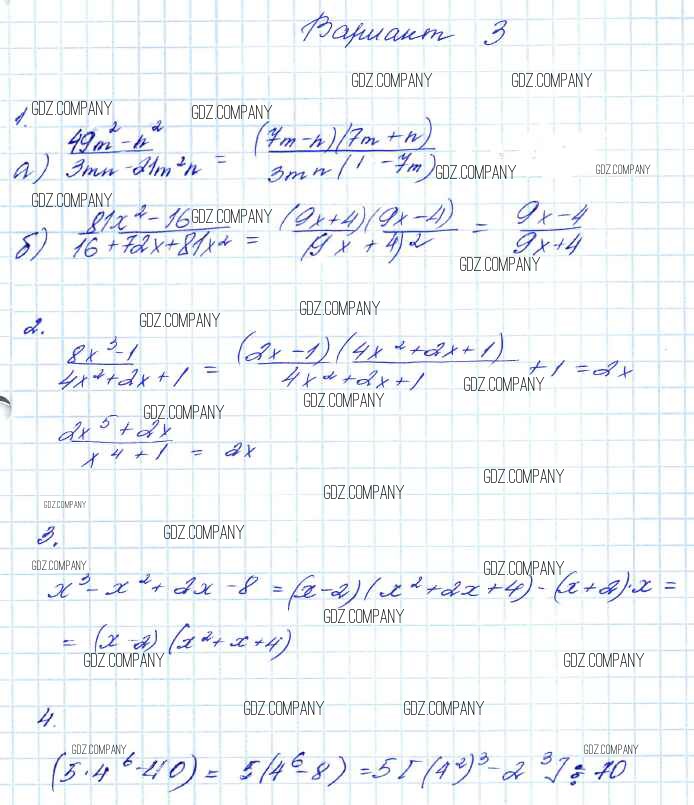 Вариант 3
GDZ.COMPANY GDZ.COMPANY
1. GDZ.COMPANY GDZ.COMPANY
а) (49m² - n²)/(3mn - 21m²n) = (7m - n)(7m + n)/3mn(1 - 7m) GDZ.COMPANY GDZ.COMPANY
GDZ.COMPANY GDZ.COMPANY
б) (81x² - 16)/(16 + 72x + 81x²) = (9x+4)(9x-4)/(9x + 4)² = (9x - 4)/(9x + 4)
GDZ.COMPANY
GDZ.COMPANY GDZ.COMPANY
2.
(8x³ - 1)/(4x² + 2x + 1) = (2x - 1)(4x² + 2x + 1)/(4x² + 2x + 1) + 1 = 2x
GDZ.COMPANY GDZ.COMPANY GDZ.COMPANY
(2x⁵ + 2x)/(x⁴ + 1) = 2x
GDZ.COMPANY GDZ.COMPANY
GDZ.COMPANY
3. GDZ.COMPANY
GDZ.COMPANY GDZ.COMPANY
x³ - x² + 2x - 8 = (x - 2)(x² + 2x + 4) - (x + 2)·x =
GDZ.COMPANY
= (x - 2)(x² + x + 4)
GDZ.COMPANY GDZ.COMPANY
4. GDZ.COMPANY GDZ.COMPANY
GDZ.COMPANY GDZ.COMPANY
(5·4⁶ - 40) = 5(4⁶ - 8) = 5[(4²)³ - 2³] ⋮ 70